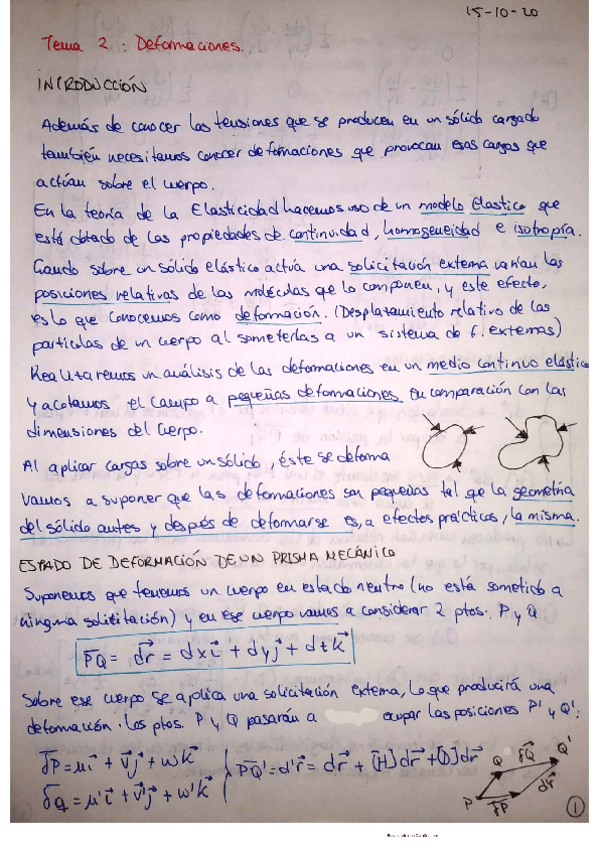 15-10-20
Tema 2: Deformaciones.
INTRODUCCIÓN
Además de conocer las tensiones que se producen en un sólido cargado
también necesitamos conocer deformaciones que provocan esas cargas que
actúan sobre el cuerpo.
En la teoría de la Elasticidad hacemos uso de un modelo Elastico que
está dotado de las propiedades de continuidad, homogeneidad e isotropía.
Cuando sobre un sólido elástico actúa una solicitación externa varían las
posiciones relativas de las moléculas que lo componen, y este efecto,
es lo que conocemos como deformación. (Desplazamiento relativo de las
partículas de un cuerpo al someterlas a un sistema de f. externas)
Realizaremos un análisis de las deformaciones en un medio continuo elástico
y acotamos el campo a pequeñas deformaciones en comparación con las
dimensiones del cuerpo.
Al aplicar cargas sobre un sólido, éste se deforma
Vamos a suponer que las deformaciones son pequeñas tal que la geometría
del sólido antes y después de deformarse es, a efectos prácticos, la misma.
ESTADO DE DEFORMACIÓN DE UN PRISMA MECÁNICO
Suponemos que tenemos un cuerpo en estado neutro (no está sometido a
ninguna solicitación) y en ese cuerpo vamos a considerar 2 ptos. P y Q
PQ = dr⃗ = dxi⃗ + dyj⃗ + dzk⃗
Sobre ese cuerpo se aplica una solicitación externa, lo que producirá una
deformación. Los ptos. P y Q pasarán a ocupar las posiciones P' y Q':
δP = μi⃗ + vj⃗ + wk⃗
δq = μ'i⃗ + v'j⃗ + w'k⃗
PQ' = d'r⃗ = dr⃗ + [H]dr⃗ + [D]dr⃗
P Q δQ Q' δP dr⃗
1